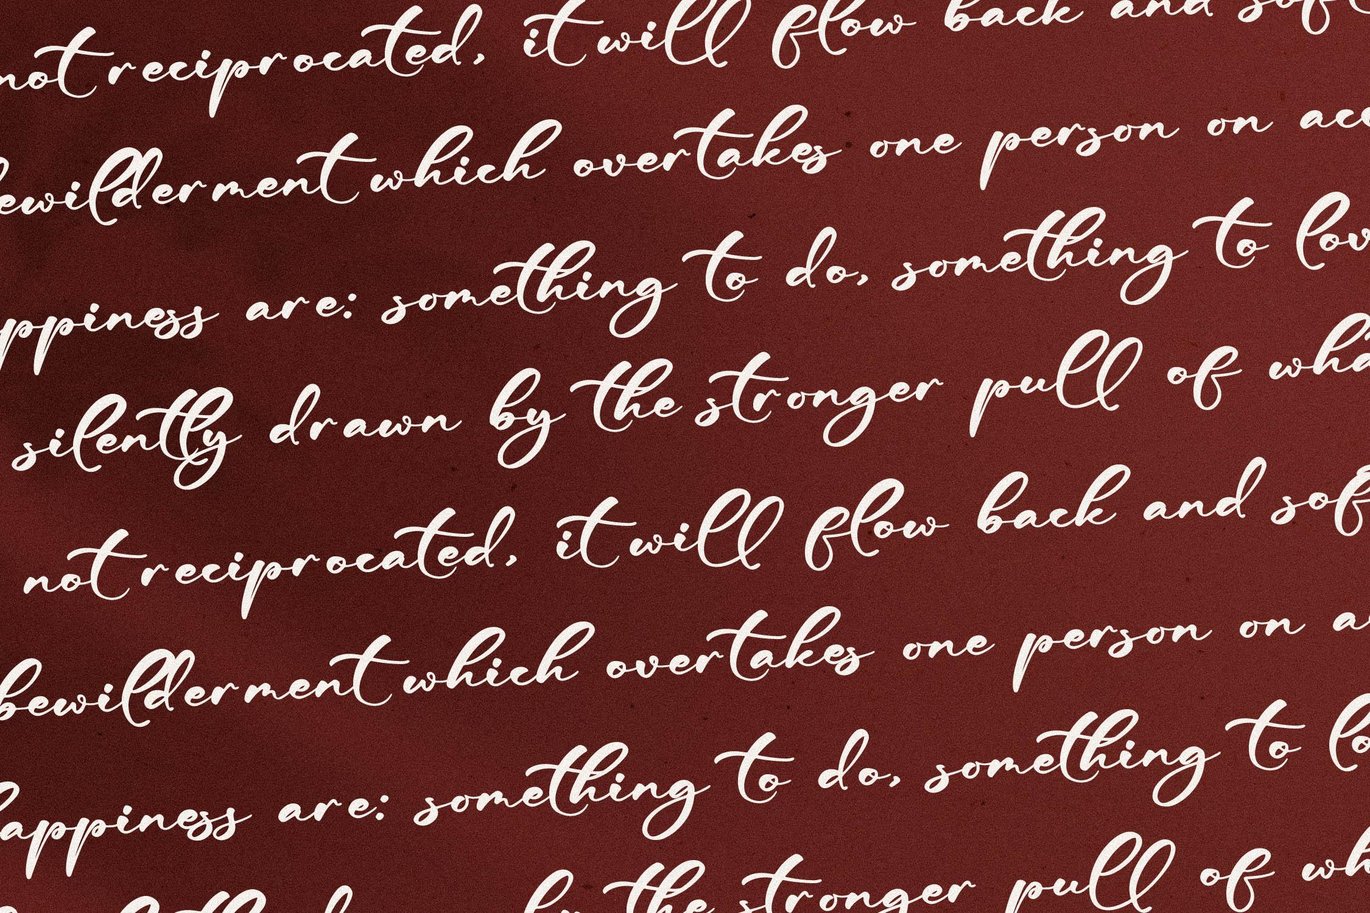 not reciprocated, it will flow back and sof
bewilderment which overtakes one person on acc
ppiness are: something to do, something to lov
silently drawn by the stronger pull of wha
not reciprocated, it will flow back and sof
bewilderment which overtakes one person on a
happiness are: something to do, something to lo
silently drawn by the stronger pull of wh